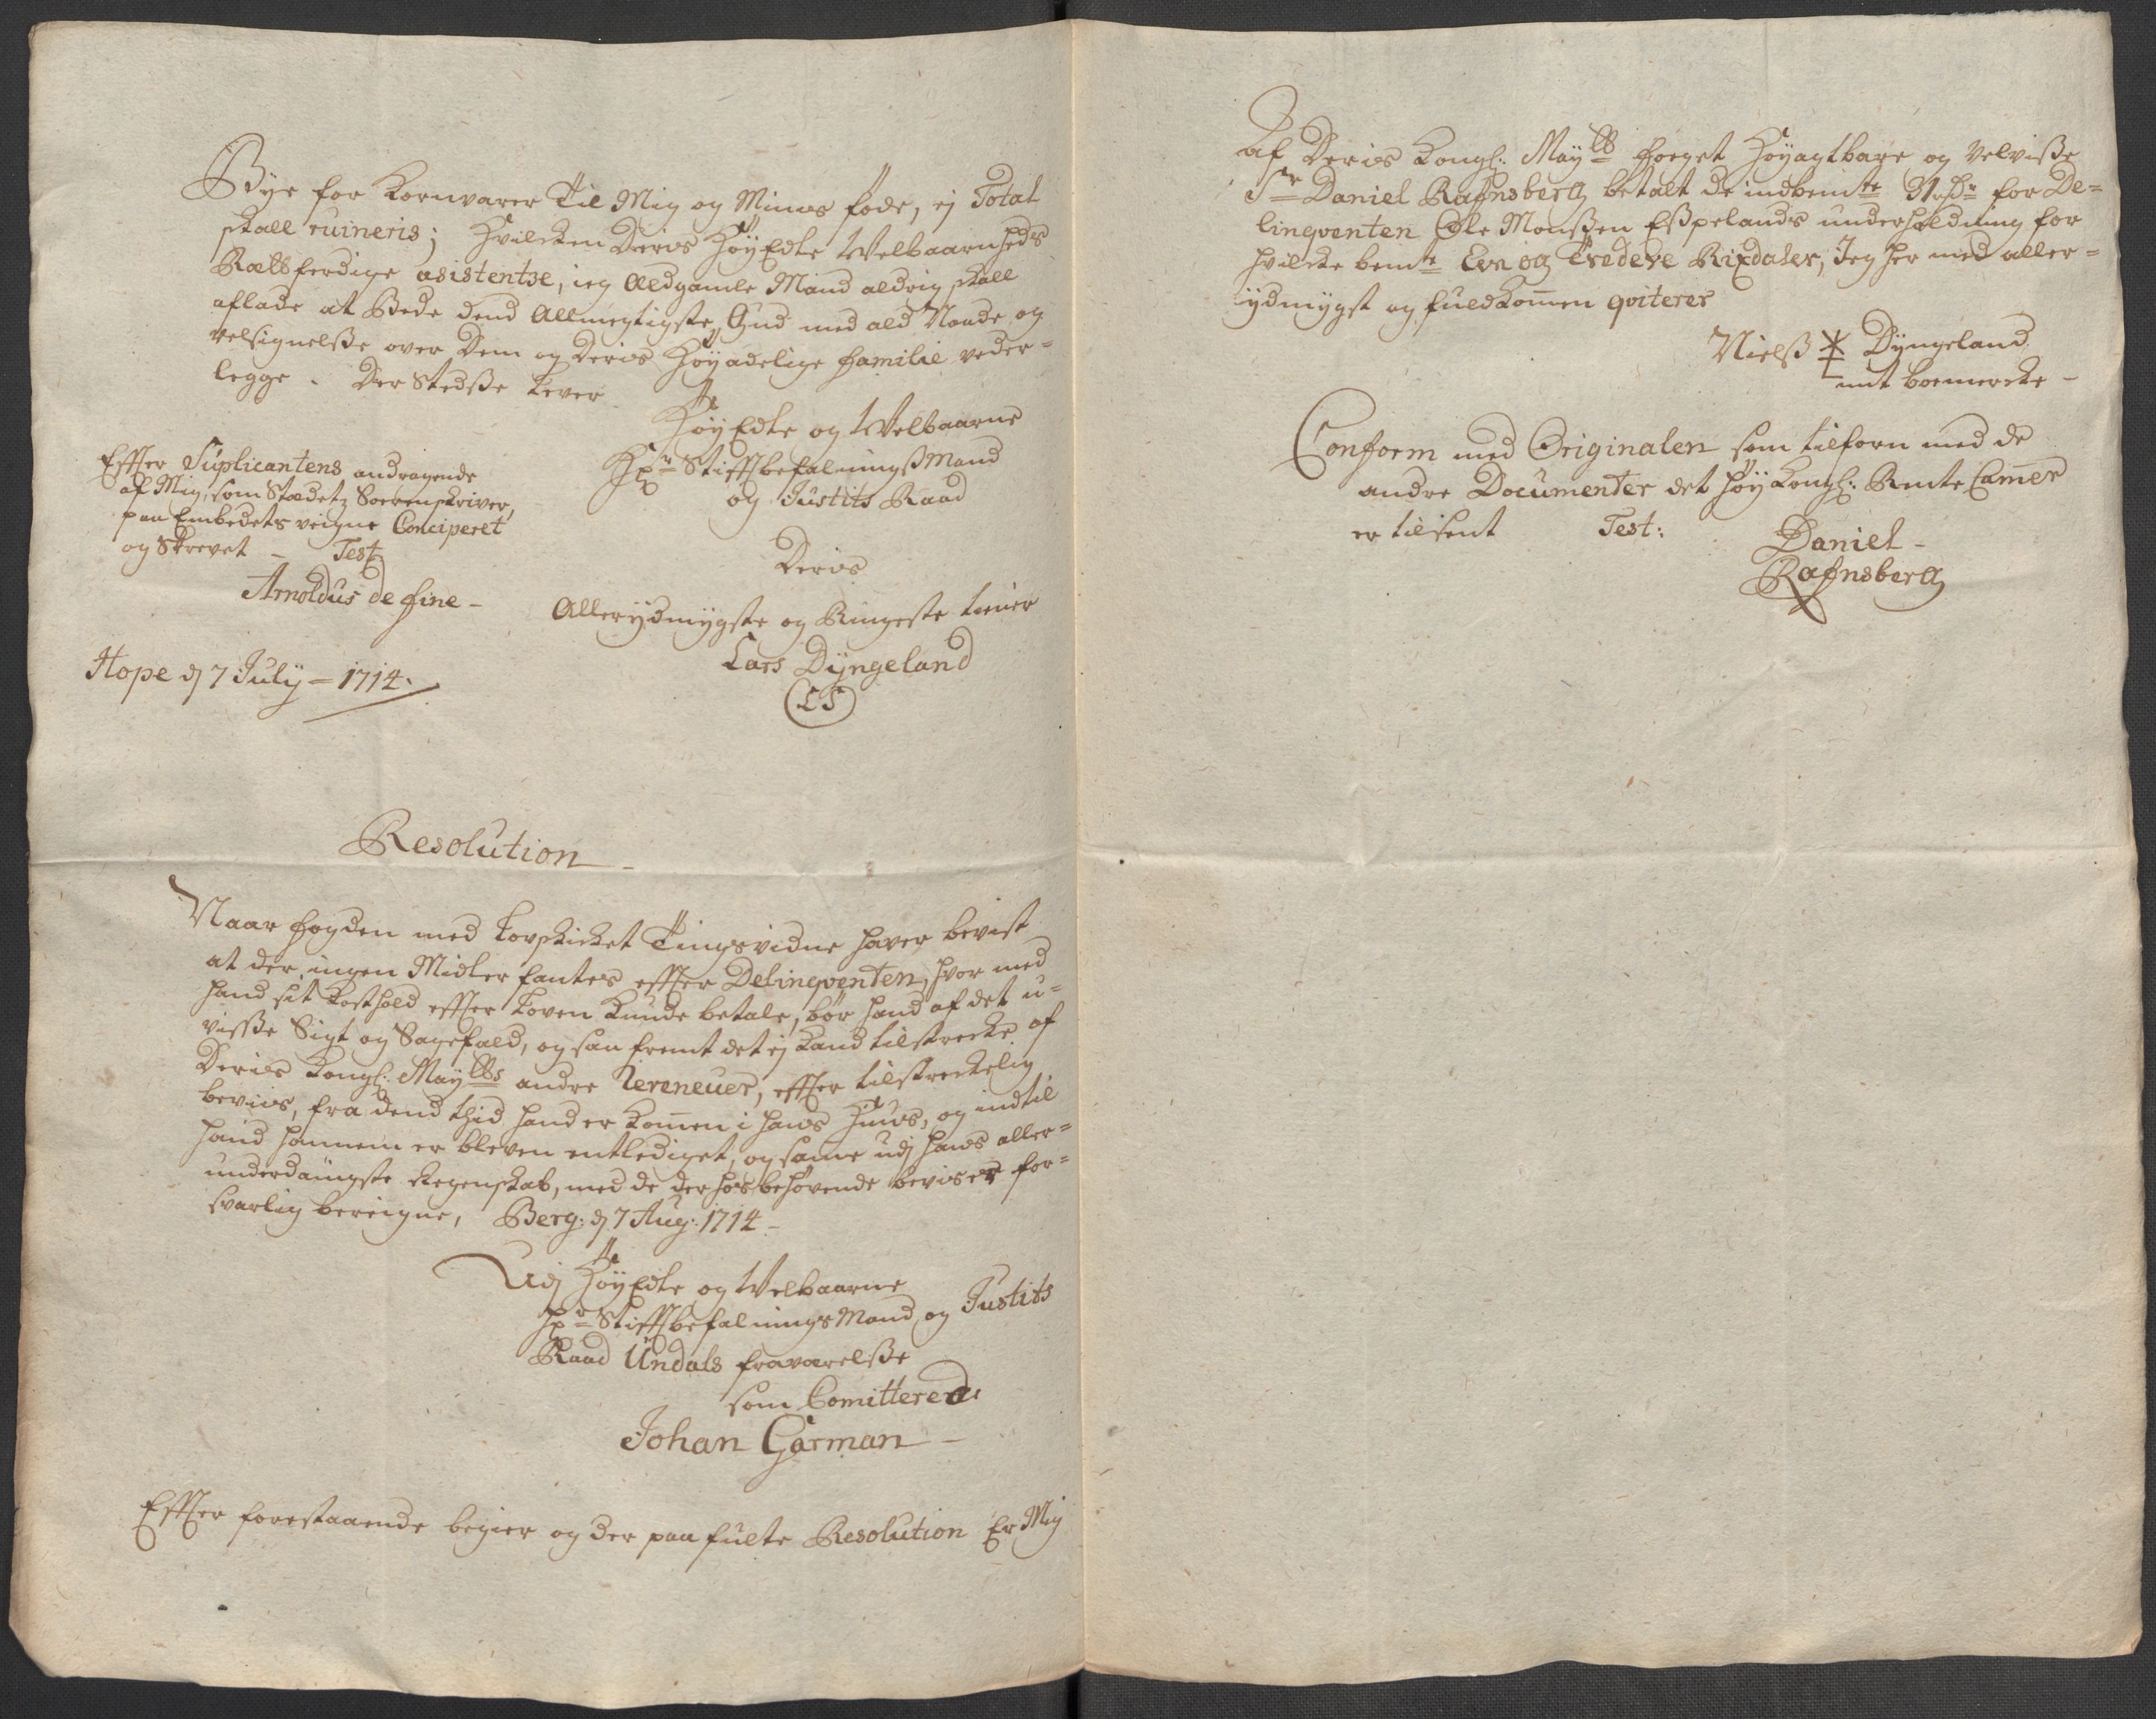 Bye for Kornvarer Til Mig og Mines føde, ej Total
skall ruineris; Hvilcken Deris HøyEdle Welbaarnheds
Rætsferdige asistentze, ieg Aldgamle Mand aldrig skall
aflade at Bede dend Allmegtigste Gud med ald Naade og
velsignelsse over Dem og Deris Høyadelige familie veder-
legge. Der stedsse lever
HøyEdle og Welbaarne
Hr Stifftbefalningssmand
og Justits Raad
Deris
Allerydmygste og Ringeste tiener
Lars Dyngeland
LS
Effter Suplicantens andragende
af Mig, som Stædetz Sorenskriver,
paa Embedets veigne Conciperet
og Skrevet – Test
Arnoldus de fine –
Hope d 7 July – 1714.
Resolution –
Naar fogden med lovskicket Tingsvidne haver bevist
at der ingen Midler fantes effter Delinqventen, hvor med
hand sit Kosthold effter loven kunde betale, bør hand af det u-
visse Sigt og Sagefald, og saa fremt det ej kand tilstrecke af
Deris Kongl: Mayts andre Revenuer, effter tilstreckelig
beviis, fra dend thid hand er kommen i hans Huus, og indtil
hand hannem er bleven entlediget, og samme udj hans aller-
underdanigste Regenskab, med de derhos behøvende beviser for-
svarlig bereigne, Berg: d 7 Aug: 1714 –
Udj HøyEdle og Welbaarne
Hr Stifftbefalnings Mand og Justits
Raad Undals fraværelsse
som Comittered
Johan Garman –
Effter forestaaende begier og der paa fulte Resolution Er Mig
Af Deris Kongl: Mayts foeget Høyagtbare og Velvisse
Sr Daniel Rafnsberg betalt de indbemte 31 rdr for De-
linqventen Ole Monssen Esspelands underholdning for
hvilcke bemte Een og Tredeve Rixdaler, Jeg her med aller-
ydmygst og fuldkommen qviterer
Nielss Dyngeland
mit boemercke –
Conform med Originalen som tilforn med de
andre Documenter det høy Kongl: Rente Camer
er tilsent Test:
Daniel –
Rafnsberg